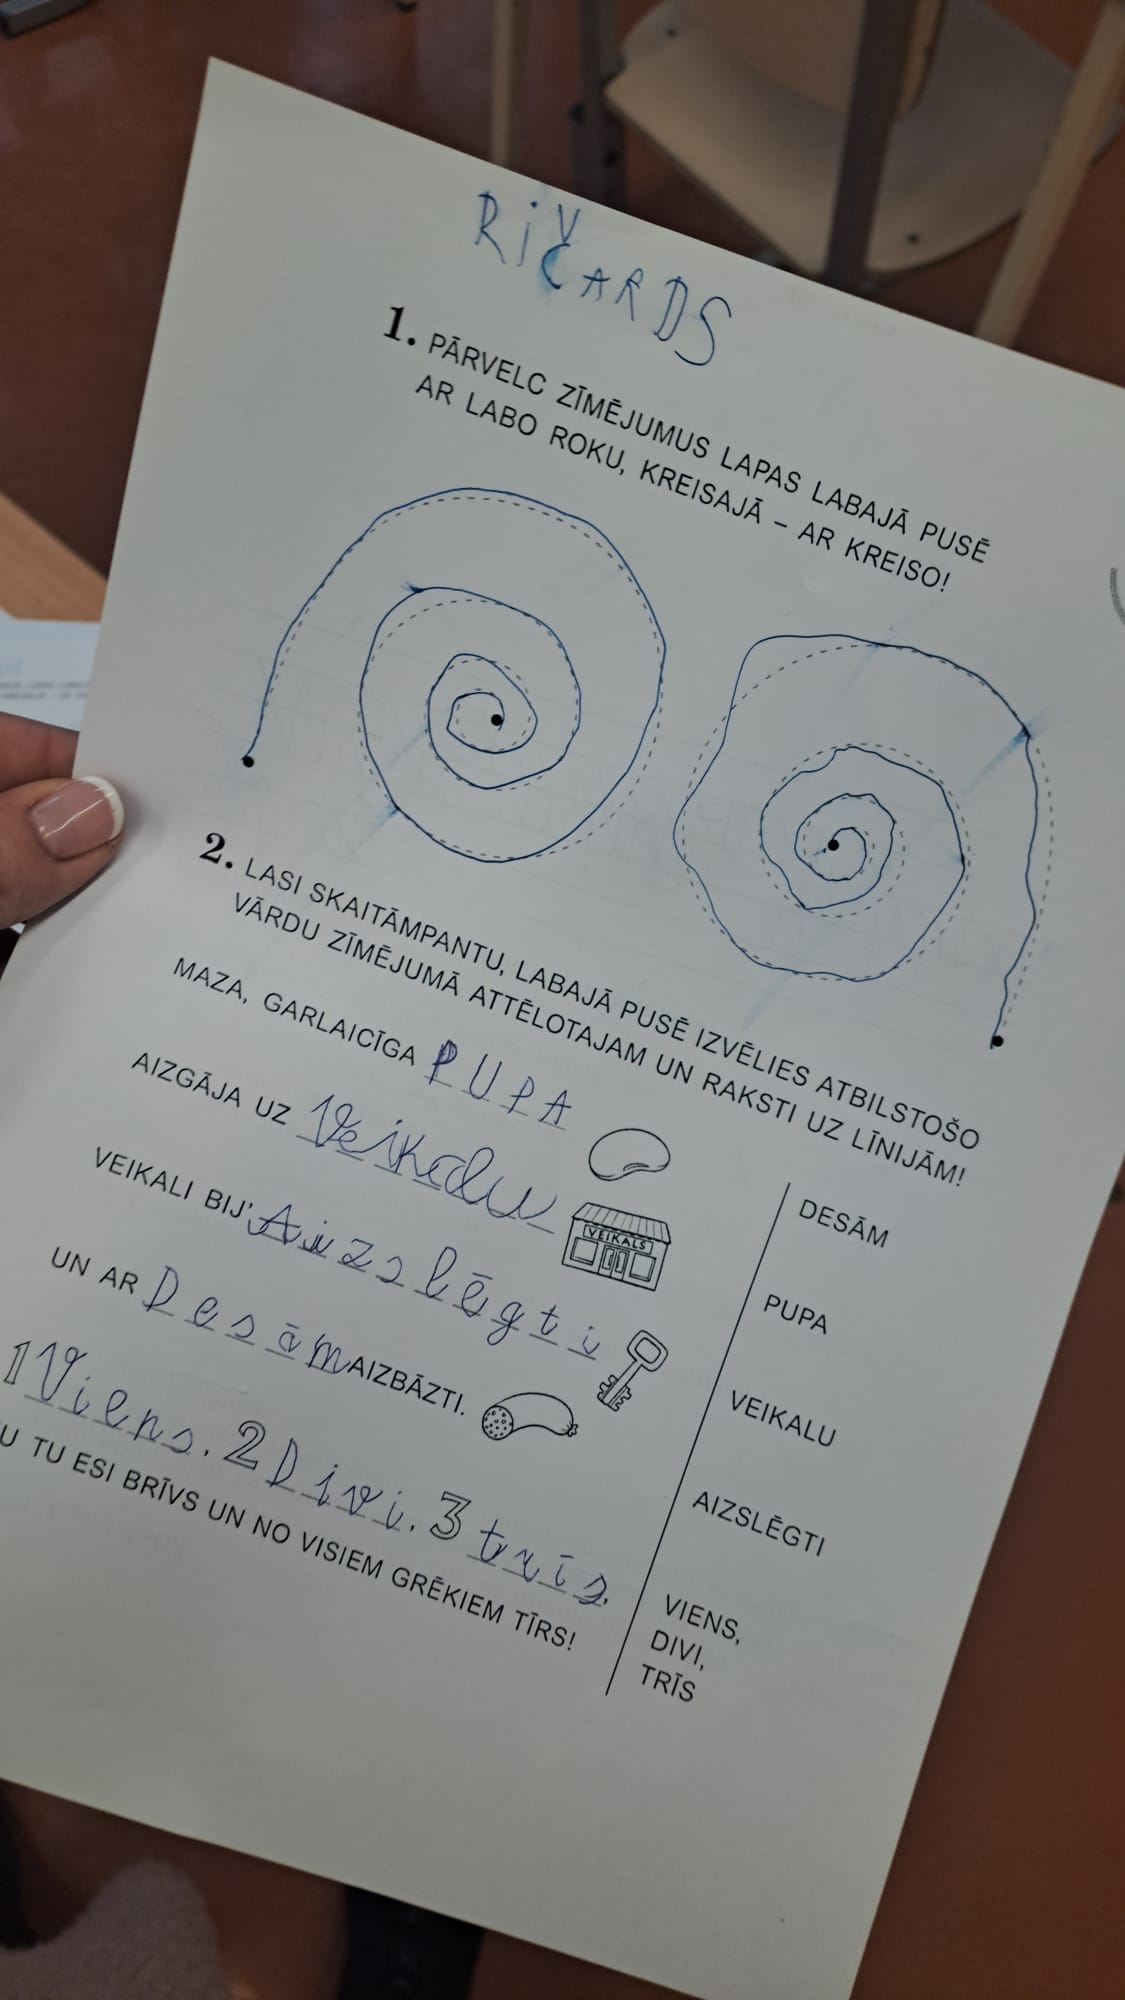 RIČARDS
1. PĀRVELC ZĪMĒJUMUS LAPAS LABAJĀ PUSĒ
AR LABO ROKU, KREISAJĀ – AR KREISO!
2. LASI SKAITĀMPANTU, LABAJĀ PUSĒ IZVĒLIES ATBILSTOŠO
VĀRDU ZĪMĒJUMĀ ATTĒLOTAJAM UN RAKSTI UZ LĪNIJĀM!
MAZA, GARLAICĪGA PUPA
AIZGĀJA UZ Veikalu
VEIKALS
VEIKALI BIJ' Aizslēgti
UN AR Desām AIZBĀZTI.
1 Viens. 2 Divi. 3 trīs,
U TU ESI BRĪVS UN NO VISIEM GRĒKIEM TĪRS!
DESĀM
PUPA
VEIKALU
AIZSLĒGTI
VIENS,
DIVI,
TRĪS